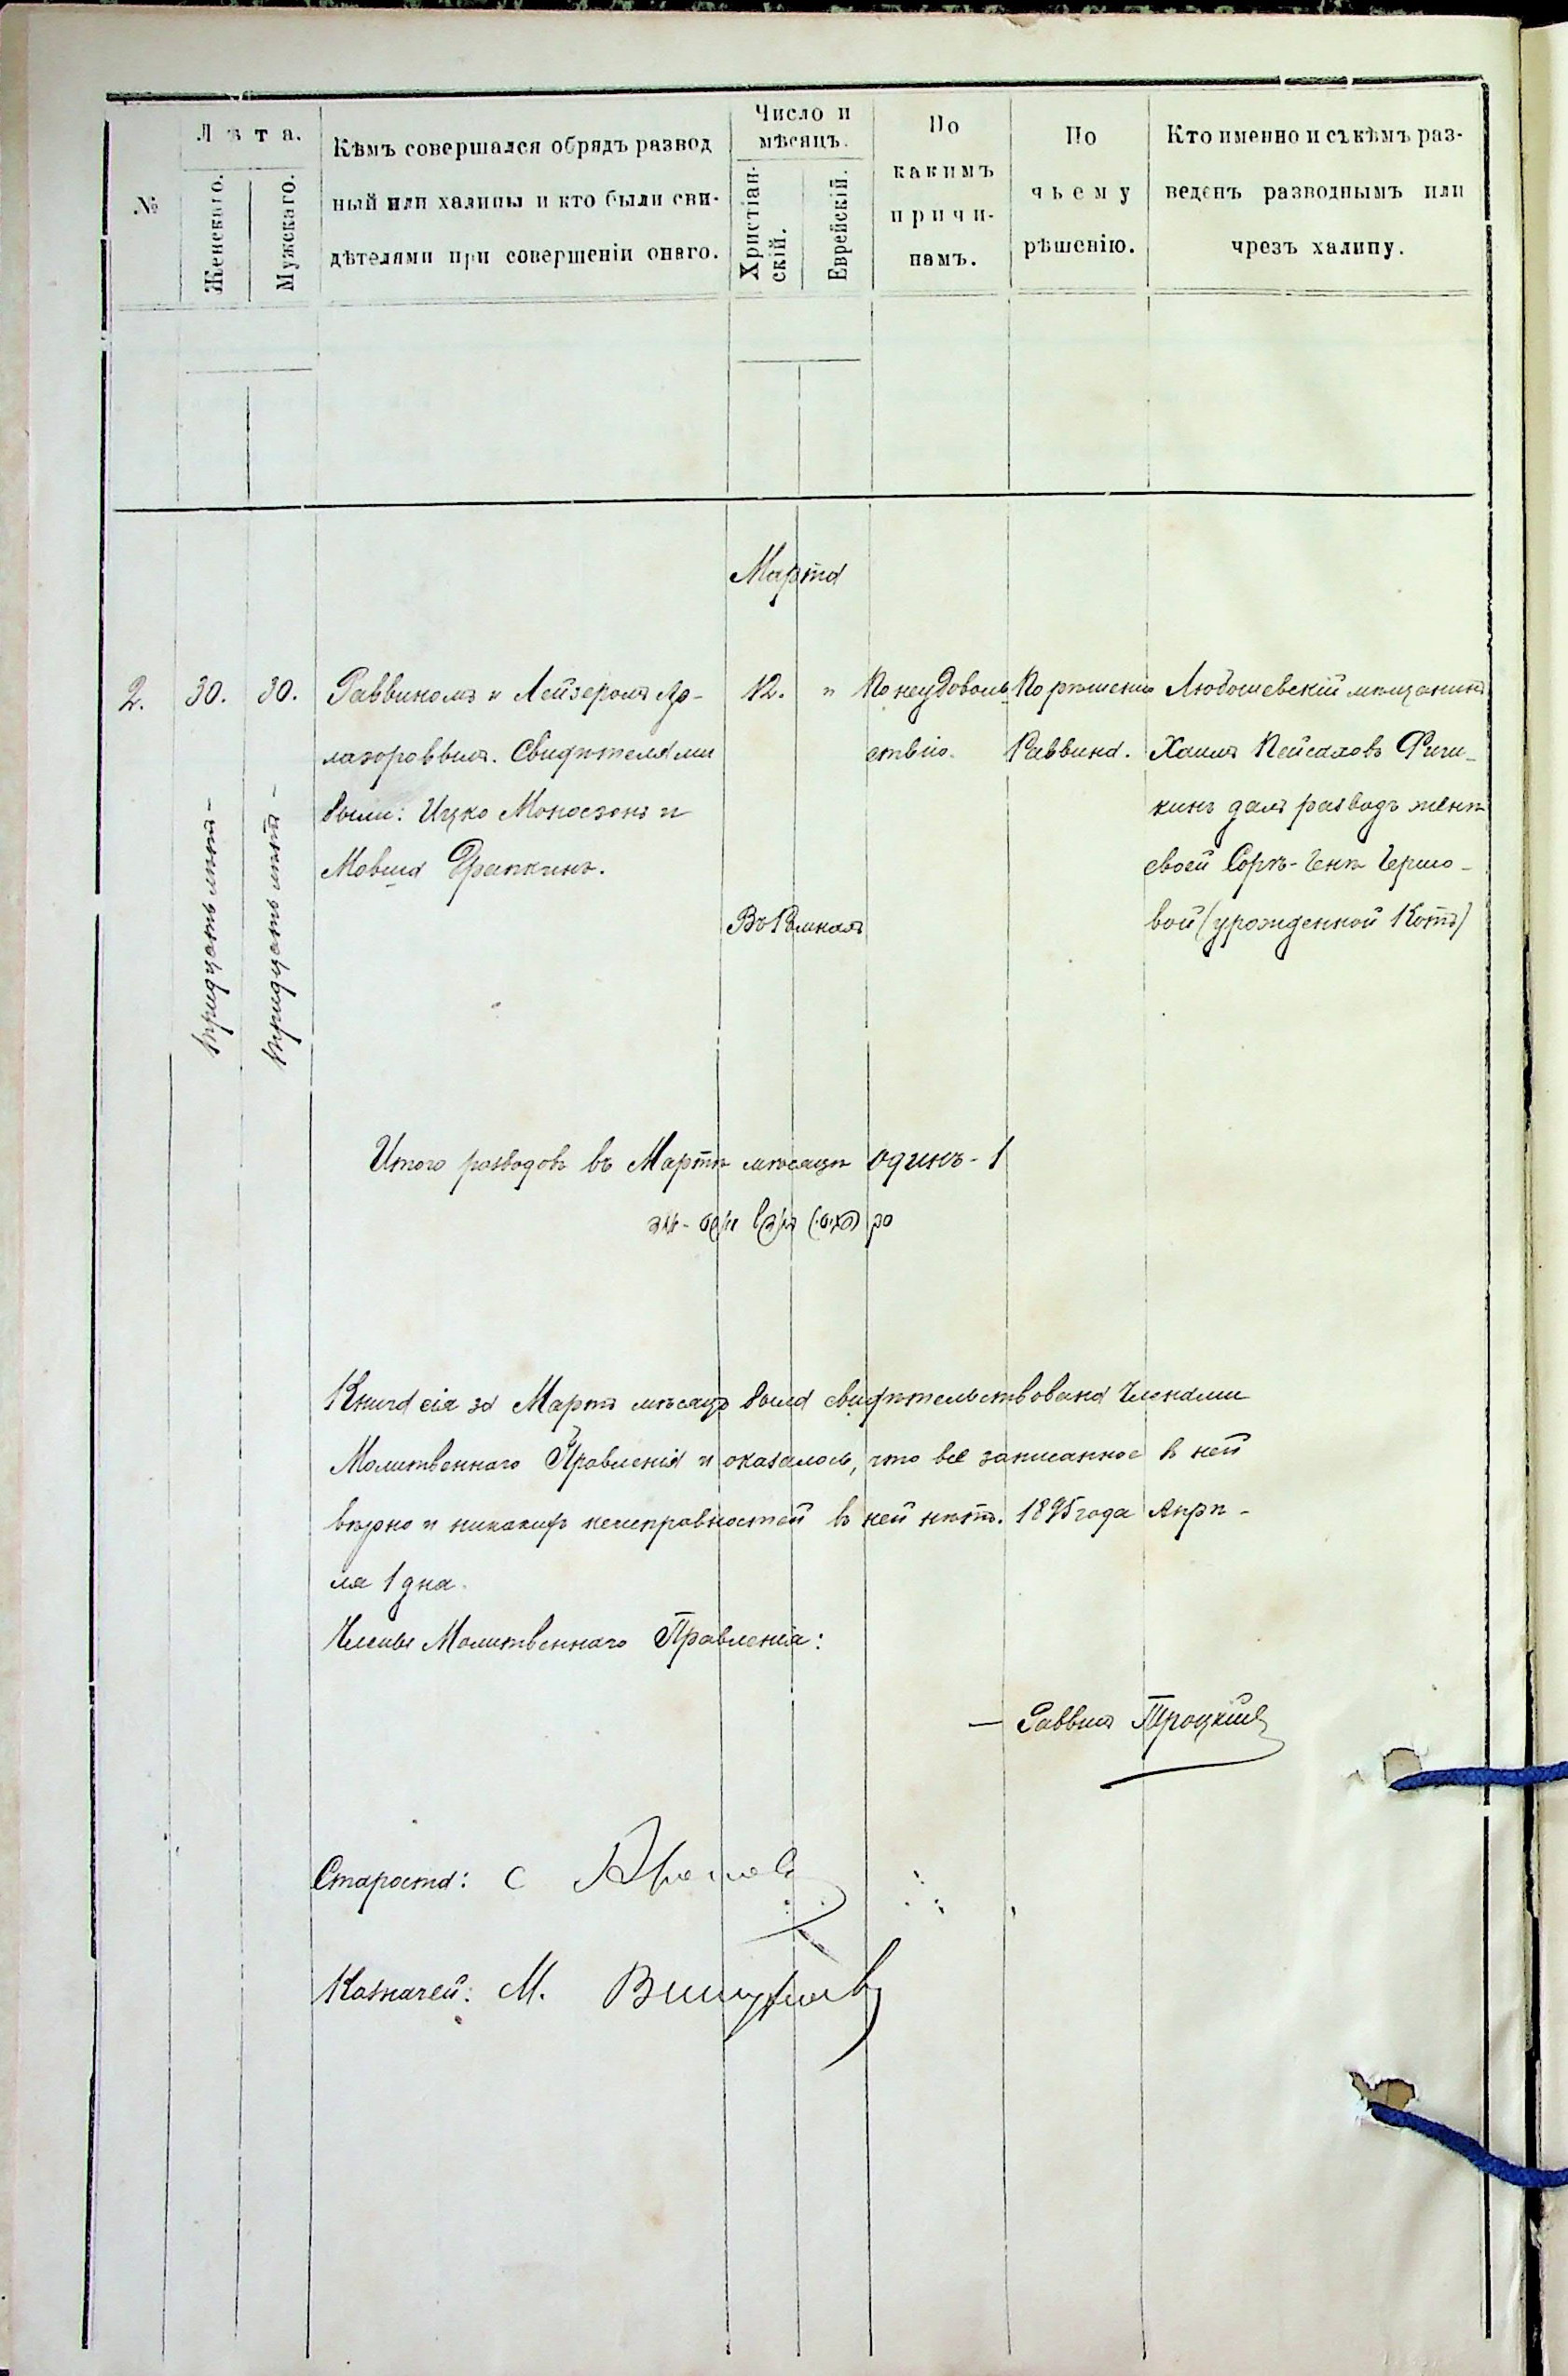 №
Лѣта.
Женскаго.
Мужскаго.
Кѣмъ совершался обрядъ развод
ный или халицы и кто были сви-
дѣтелями при совершеніи онаго.
Число и
мѣсяцъ.
Христіан-
скій.
Еврейскій.
По
какимъ
причи-
намъ.
По
чьему
рѣшенію.
Кто именно и съ кѣмъ раз-
веденъ разводнымъ или
чрезъ халицу.
Марта
2.
30.
тридцать лѣтъ -
30.
тридцать лѣтъ -
Раввиномъ и Лейзеромъ Ар-
лазоровымъ. Свидѣтелями
были: Ицко Моносзонъ и
Мовша Драпкинъ.
12. "
Въ Ромнахъ
По неудоволь
ствію.
По рѣшенію
Раввина.
Любошевскій мѣщанинъ
Хаимъ Пейсаховъ
кинъ далъ разводъ женѣ
своей Сорѣ-Генѣ Гершо-
вой (урожденной Котъ)
Итого разводовъ въ Мартѣ мѣсяцѣ одинъ - 1
Книга сія за Мартъ мѣсяцъ была свидѣтельствована Членами
Молитвеннаго Правленія и оказалось, что все записанное въ ней
вѣрно и никакихъ неисправностей въ ней нѣтъ. 1895 года Апрѣ-
ля 1 дня.
Члены Молитвеннаго Правленія:
— Раввинъ Троцкій
Староста: С
Казначей: М.